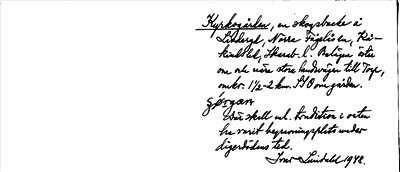 Kyrkogården, en skogsbacke å
Liderged, Norra Fågelås sn, Kå-
kinds hd, Skarab. l. Belägen öster
om och nära stora landsvägen till Torp,
omkr. 1½-2 km. SSO om gården.
Sörgarn
Där skall enl. tradition i orten
ha varit begravningsplats under
digerdödens tid.
Ivar Lundahl 1948.